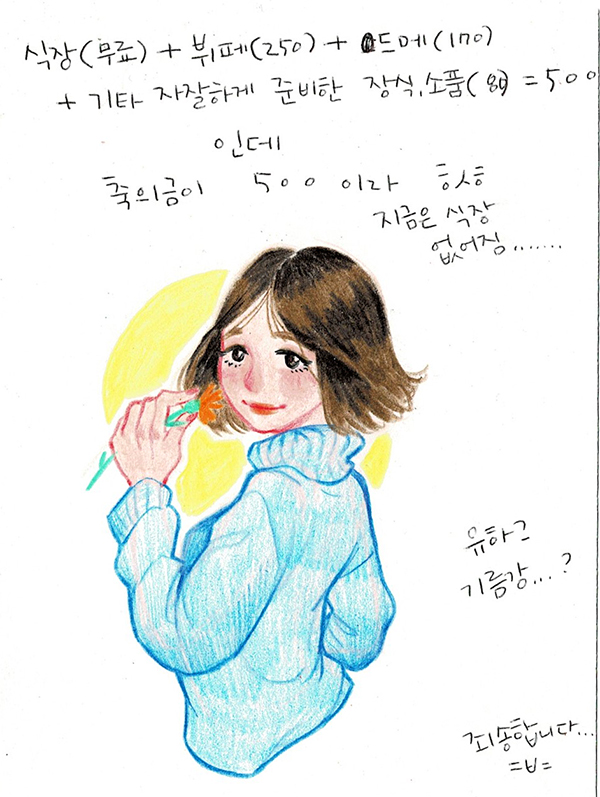 식장(무료) + 뷔페(250) + 드메(170)
+ 기타 자잘하게 준비한 장식,소품(80) = 500
인데
축의금이 500 이라 ㅎㅅㅎ
지금은 식장
없어짐.......
유하그
기름강...?
죄송합니다...
=ㅂ=